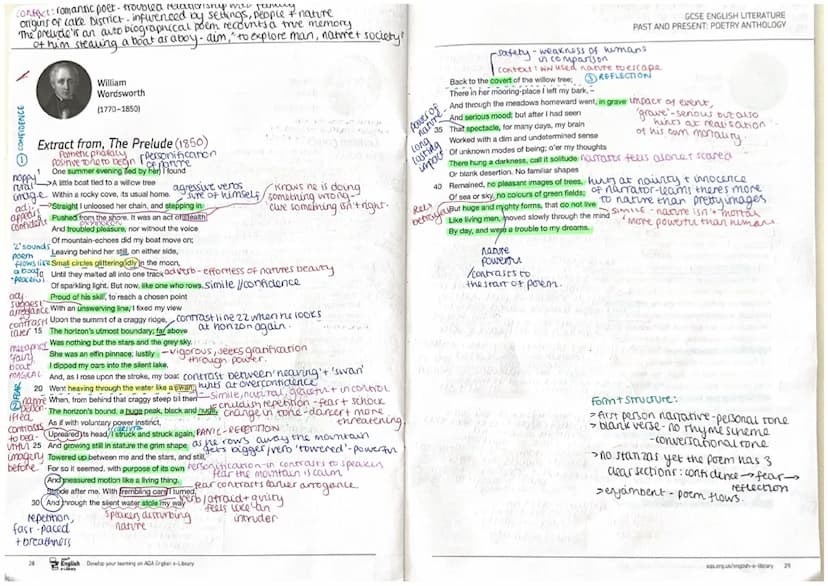 context: romantic poet - troubled relationship with family
origins of Lake District - influenced by settings, people + nature
The 'prelude' is an auto biographical poem recounts a true memory
of him stealing a boat as a boy - aim, "to explore man, nature + society"
William
Wordsworth
(1770–1850)
① CONFIDENCE
Extract from, The Prelude (1850)
Pathetic phallacy
positive tone to begin
personification
of nature
One summer evening (led by her) I found
A little boat tied to a willow tree
Within a rocky cove, its usual home.
agressive verbs
sure of himself
knows he is doing
something wrong -
cive something isn't right.
Straight I unloosed her chain, and stepping in
Pushed from the shore. It was an act of stealth
And troubled pleasure, nor without the voice
Of mountain-echoes did my boat move on;
Leaving behind her still, on either side,
Small circles glittering idly in the moon,
Until they melted all into one track
adverb - effortless of natures beauty
Of sparkling light. But now, like one who rows,
simile // confidence
Proud of his skill, to reach a chosen point
With an unswerving line, I fixed my view
Upon the summit of a craggy ridge,
contrast line 22 when he looks
at horizon again.
15 The horizon's utmost boundary; far above
Was nothing but the stars and the grey sky.
She was an elfin pinnace; lustily
- vigorous, seeks gratification
through power.
I dipped my oars into the silent lake,
And, as I rose upon the stroke, my boat
contrast between 'heaving' + 'swan'
20 Went heaving through the water like a swan;
hints at overconfidence
simile, natural, graceful + in control
When, from behind that craggy steep till then
childish repetition - fear + shock
The horizon's bound, a huge peak, black and huge,
change in tone - danger + more
threatening.
As if with voluntary power instinct,
Upreared its head. I struck and struck again,
PANIC - REPETITION
25 And growing still in stature the grim shape
as he rows away the mountain
gets bigger / verb 'towered' - powerful
Towered up between me and the stars, and still,
For so it seemed, with purpose of its own
personification - in contrasts to speakers
fear the mountain is calm
And measured motion like a living thing,
Strode after me. With trembling oars I turned,
fear contrasts earlier arrogance
30 And through the silent water stole my way
verb / afraid + guilty
feels like an
intruder
speaker disturbing
nature
repetition,
fast-paced
+ breathness
happy
rural
image
adj
appears
confident
'L' sounds
poem
flows like
a boat
peaceful
adj
suggest
arrogance
contrasts
later
metaphor
'fairy'
boat
MAGICAL
② FEAR
contrasts
to bea-
utiful
imagery
before.
28
English
e-Library
Develop your learning on AQA English e-Library
GCSE ENGLISH LITERATURE
PAST AND PRESENT: POETRY ANTHOLOGY
safety - weakness of humans
in comparison
context: WW used nature to escape
Back to the covert of the willow tree;
③ REFLECTION
There in her mooring-place I left my bark, –
And through the meadows homeward went, in grave
impact of event,
'grave' - serious but also
hints at realisation
of his own mortality
And serious mood; but after I had seen
35 That spectacle, for many days, my brain
Worked with a dim and undetermined sense
Of unknown modes of being; o'er my thoughts
There hung a darkness, call it solitude
narrator feels alone + scared
Or blank desertion. No familiar shapes
40 Remained, no pleasant images of trees,
hints at naivity + innocence
of narrator - learns theres more
to nature than pretty images
Of sea or sky, no colours of green fields;
But huge and mighty forms, that do not live
simile - nature isn't mortal
'more powerful than humans'
Like living men, moved slowly through the mind
By day, and were a trouble to my dreams.
power of
nature
long
lasting
impact
feels
betrayed
nature
powerful
/contrasts to
the start of poem.
Form + structure:
> first person narrative - personal tone
> blank verse - no rhyme scheme
- conversational tone
> no stanzas yet the poem has 3
clear sections: confidence → fear →
reflection
> enjambent - poem flows.
aqa.org.uk/english-e-library
29